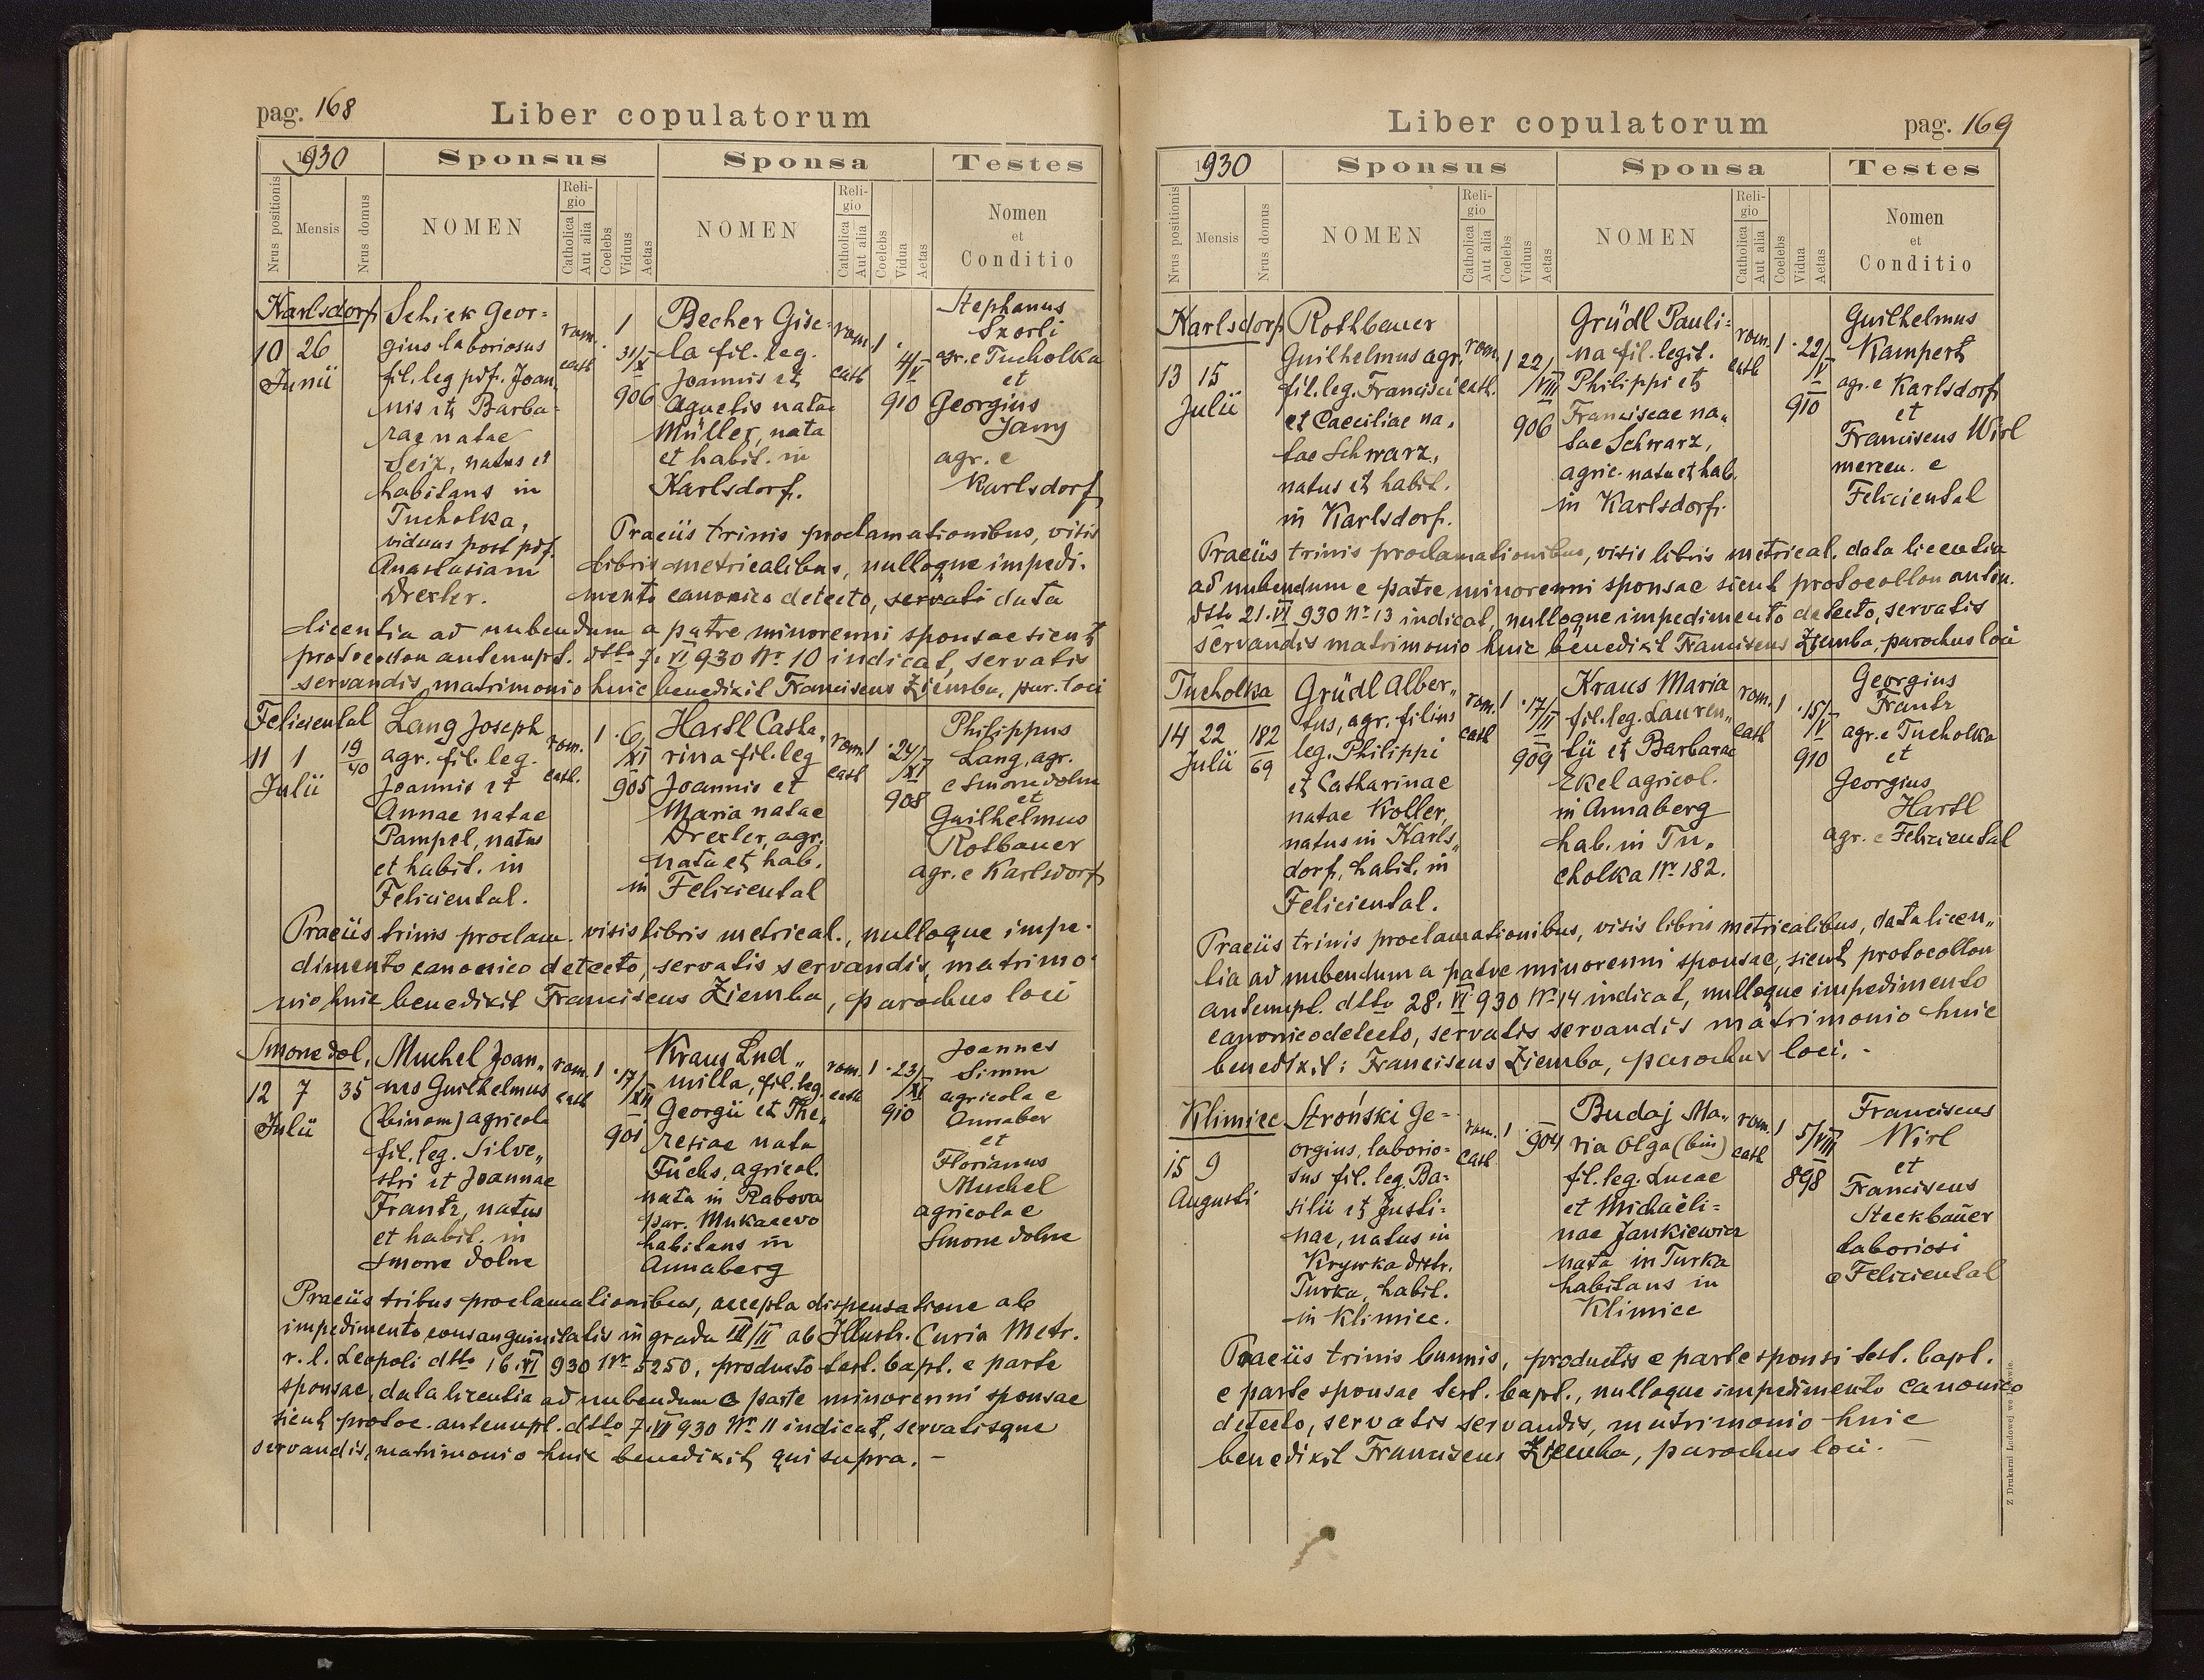 pag. 168
Liber copulatorum
1930
Sponsus
Sponsa
Testes
Nrus positionis
Mensis
Nrus domus
NOMEN
Religio
Catholica
Aut alia
Coelebs
Viduus
Aetas
NOMEN
Religio
Catholica
Aut alia
Coelebs
Vidua
Aetas
Nomen
et
Conditio
Karlsdorf
10 26
Junii
Schick Geor=
gius laboriosus
fil. leg pdf. Joan
nis et Barba=
rae natae
Seix, natus et
habitans in
Tucholka,
viduus post pdf.
Anastasiam
Drexler.
rom.
cath
1
31/X
906
Becher Gise=
la fil. leg.
Joannis et
Agnetis natae
Müller, nata
et habit. in
Karlsdorf.
rom.
cath
1.
4/V
910
Stephanus
Szorli
agr. e Tucholka
et
Georgius
Jany
agr. e
Karlsdorf
Praeiis trinis proclamationibus, visis
libris metricalibus, nulloque impedi-
mento canonico detecto, servati data
licentia ad nubendum a patre minorenni sponsae sicut
protocollon antenupt. dtto 7. VI 930 Nr 10 indicat, servatis
servandis, matrimonio huic benedixit Franciscus Ziemba, par. loci
Feliciental
11 1
Julii
19
40
Lang Joseph
agr. fil. leg.
Joannis et
Annae natae
Pampel, natus
et habit. in
Feliciental.
rom.
cath.
1.
6/XI
905
Hartl Catha,
rina fil. leg
Joannis et
Maria natae
Drexler, agr.
nata et hab.
in Feliciental
rom.
cath
1.
24/XI
908
Philippus
Lang, agr.
e Smorze dolne
et
Guilhelmus
Rotbauer
agr. e Karlsdorf
Praeiis trinis proclam. visis libris metrical., nulloque impe-
dimento canonico detecto, servatis servandis, matrimo-
nio huic benedixit Franciscus Ziemba, parochus loci
Smorze dol.
12 7 35
Julii
Muchel Joan„
nes Guilhelmus
(binom) agricola
fil. leg. Silve„
stri et Joannae
Frantz, natus
et habit. in
Smorze dolne
rom.
cath
1.
17/XII
901
Kraus Lud„
milla, fil. leg.
Georgii et The„
resiae nata
Fuchs, agricol.
nata in Rabova
par. Mukacevo
habitans in
Annaberg
rom.
cath
1.
23/XI
910
Joannes
Simm
agricola e
Annaber
et
Florianus
Muchel
agricola e
Smorze dolne
Praeiis tribus proclamationibus, accepta dispensatione ab
impedimento consanguinitatis in gradu III/II ab Illustr. Curia Metr.
r. l. Leopoli dtto 16. VI 930 Nr 5250, producto test. bapt. e parte
sponsae, data licentia ad nubendum e parte minorenni sponsae
sicut protoc. antenupt. dtto 7. VI 930 Nr. 11 indicat, servatisque
servandis, matrimonio huic benedixit qui supra. –
Liber copulatorum
pag. 169
1930
Sponsus
Sponsa
Testes
Nrus positionis
Mensis
Nrus domus
NOMEN
Religio
Catholica
Aut alia
Coelebs
Viduus
Aetas
NOMEN
Religio
Catholica
Aut alia
Coelebs
Vidua
Aetas
Nomen
et
Conditio
Karlsdorf
13 15
Julii
Rothbauer
Guilhelmus agr.
fil. leg. Francisci
et Caeciliae na,
tae Schwarz,
natus et habit.
in Karlsdorf.
rom.
cath.
1
22/VIII
906
Grüdl Pauli=
na fil. legit.
Philippi et
Franciscae na„
tae Schwarz,
agric. nata et hab.
in Karlsdorf.
rom.
cath
1.
22/V
910
Guilhelmus
Kampert
agr. e Karlsdorf
et
Franciscus Wirl
mercen. e
Feliciental
Praeiis trinis proclamationibus, visis libris metrical. data licentia
ad nubendum e patre minorenni sponsae sicut protocollon anten.
dtto 21. VI 930 Nr. 13 indicat, nulloque impedimento detecto, servatis
servandis matrimonio huic benedixit Franciscus Ziemba, parochus loci
Tucholka
14 22 182
Julii 69
Grüdl Alber„
tus, agr. filius
leg. Philippi
et Catharinae
natae Koller,
natus in Karls„
dorf, habit. in
Feliciental.
rom.
cath
1.
17/II
909
Kraus Maria
fil. leg. Lauren„
tii et Barbarae
Ekel agricol.
in Annaberg
hab. in Tu,
cholka Nr. 182.
rom.
cath
1.
15/IV
910
Georgius
Frantz
agr. e Tucholka
et
Georgius
Hartl
agr. e Feliciental
Praeiis trinis proclamationibus, visis libris metricalibus, data licen„
tia ad nubendum a patre minorenni sponsae, sicut protocollon
antenupt. dtto 28. VI 930 Nr. 14 indicat, nulloque impedimento
canonico detecto, servatis servandis matrimonio huic
benedixit: Franciscus Ziemba, parochus loci. -
Klimiec
15 9
Augusti
Stroński Ge=
orgius, laborio=
sus fil. leg. Ba=
silii et Justi=
nae, natus in
Krywka distr.
Turka, habit.
in Klimiec.
rom.
cath
1.
904
Budaj Ma„
ria Olga (bin)
fil. leg. Lucae
et Michaëli=
nae Jankiewicz
nata in Turka
habitans in
Klimiec
rom.
cath
1
5/VIII
898
Franciscus
Wirl
et
Franciscus
Steckbauer
laboriosi
e Feliciental
Praeiis trinis bannis, productis e parte sponsi test. bapt.
e parte sponsae test. bapt., nulloque impedimento canonico
detecto, servatis servandis, matrimonio huic
benedixit Franciscus Ziemba, parochus loci. –
Z Drukarni Ludowej we Lwowie.